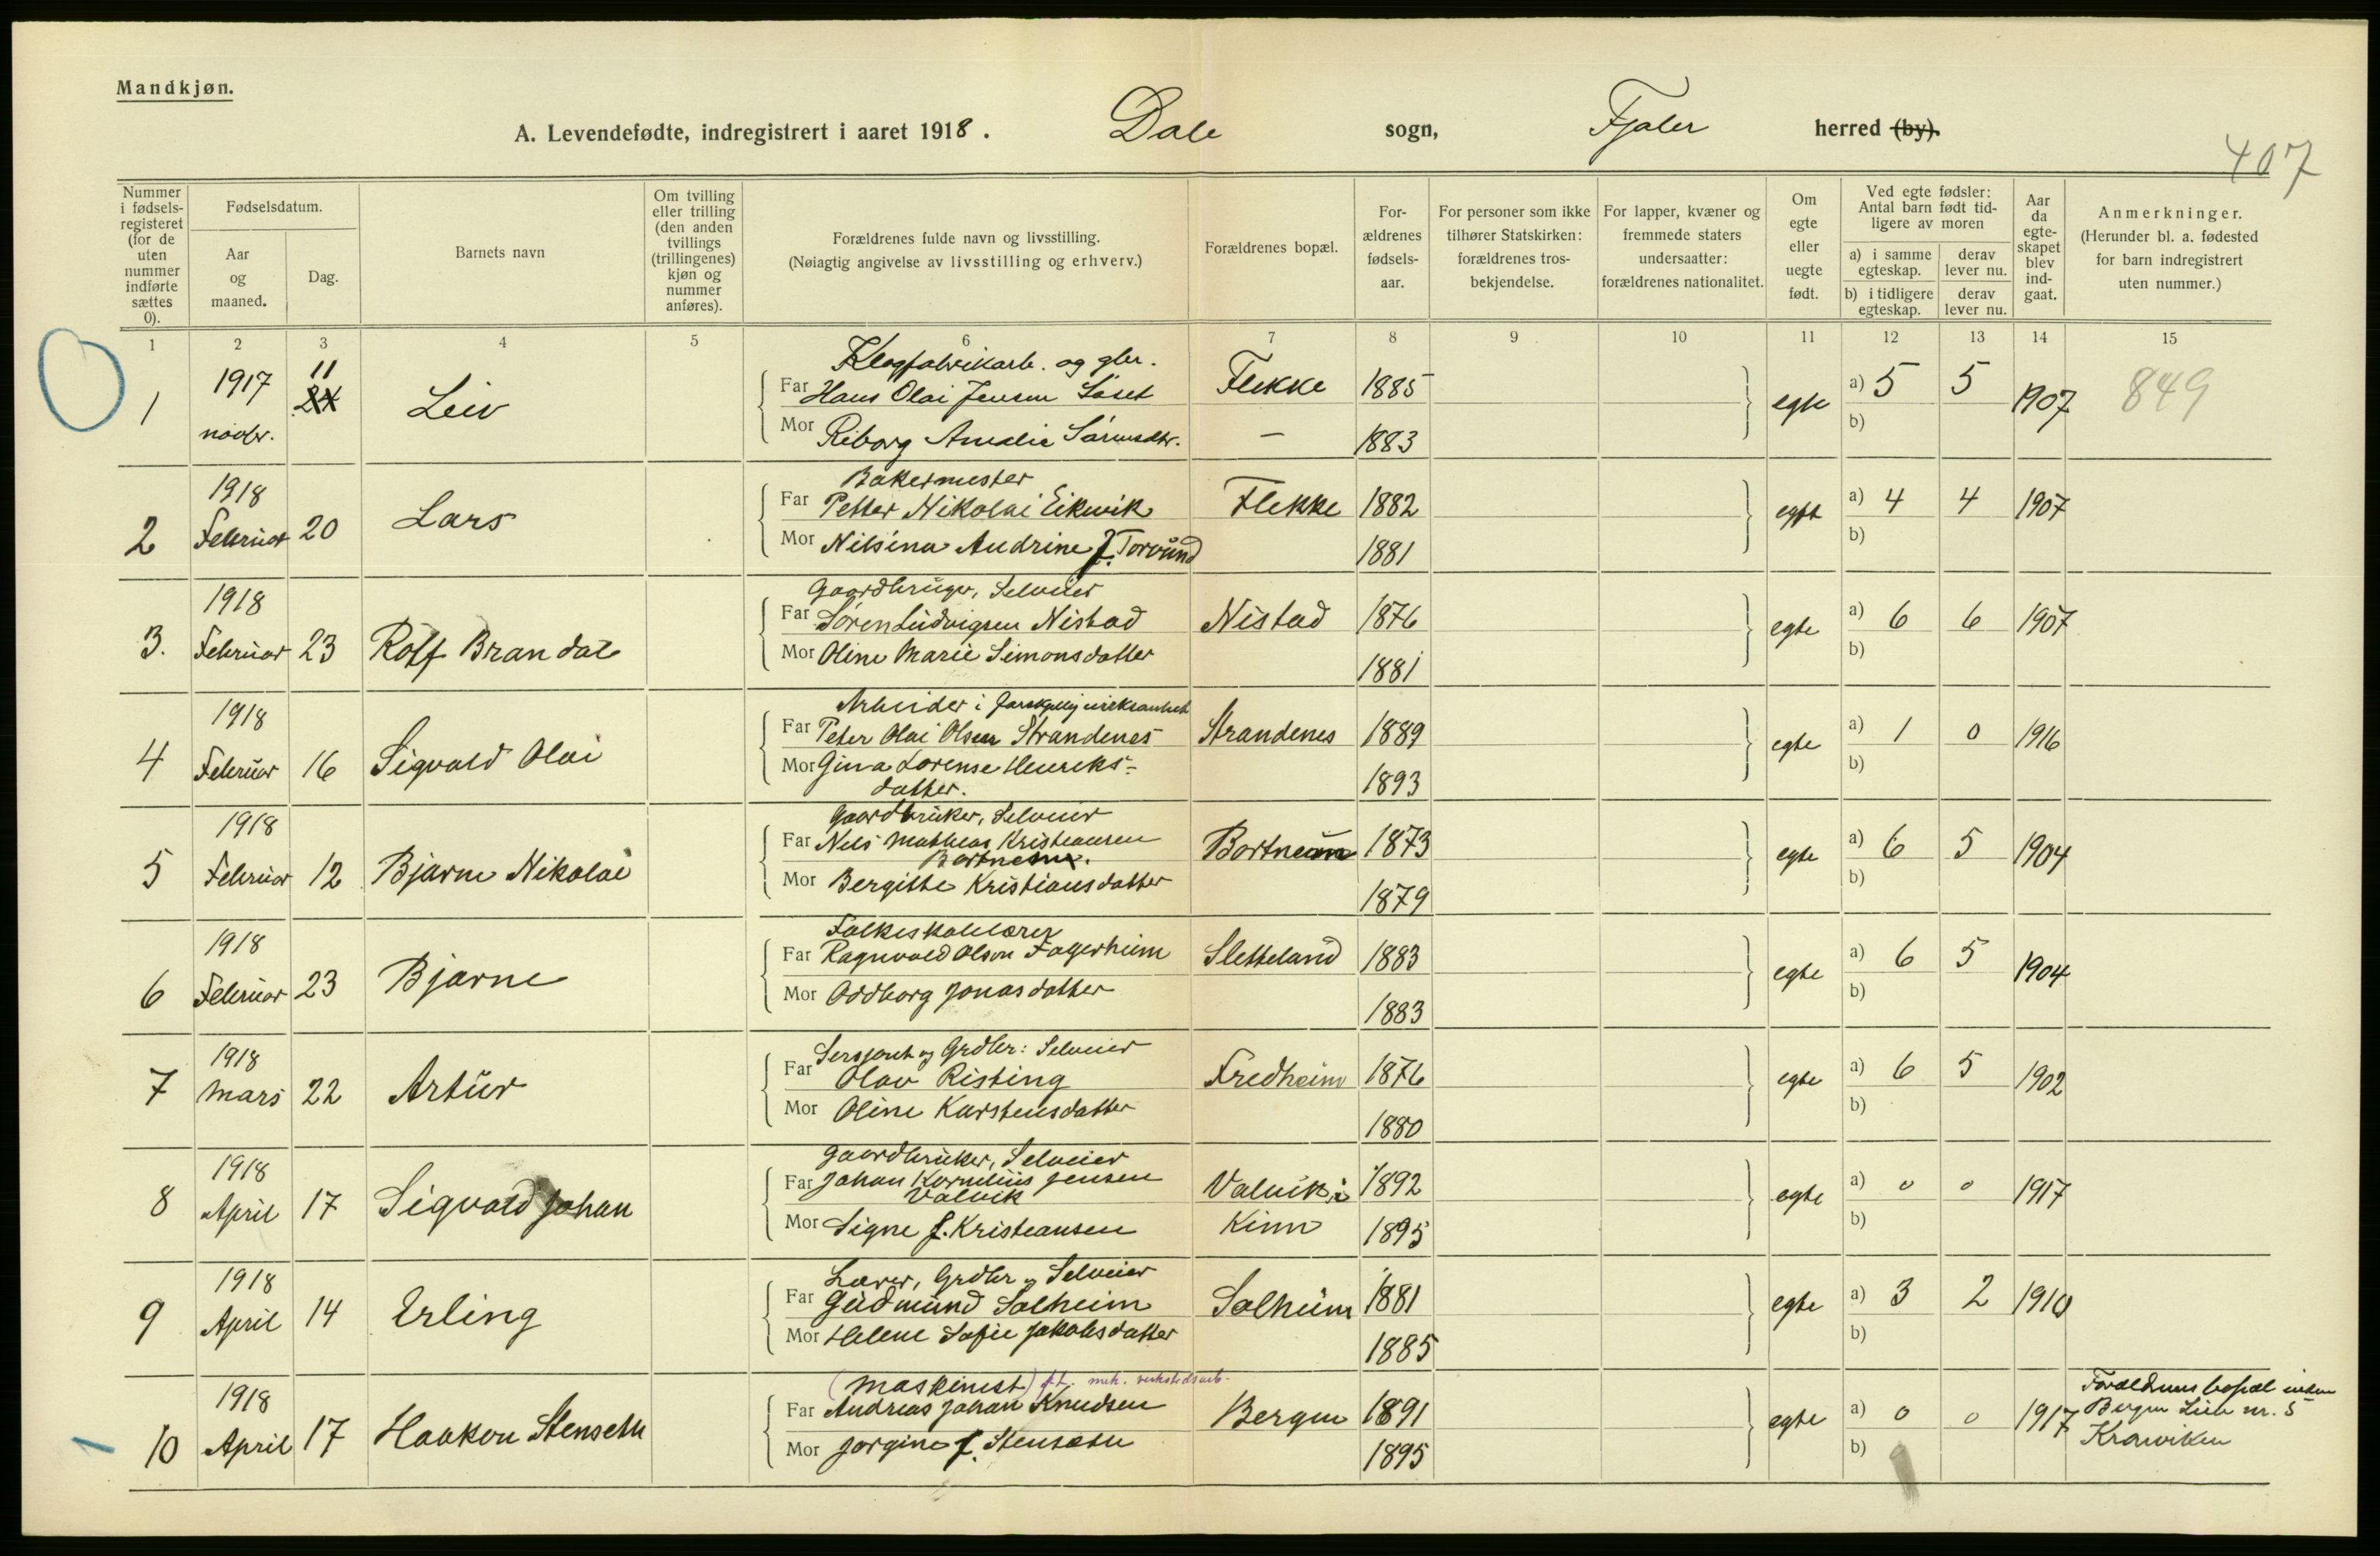 Mandkjøn.
A. Levendefødte, indregistrert i aaret 1918. Dale sogn, Fjaler herred (by).
407
Nummer i fødsels-registeret (for de uten nummer indførte sættes 0).
Fødselsdatum.
Aar og maaned.
Dag.
Barnets navn
Om tvilling eller trilling (den anden tvillings (trillingenes) kjøn og nummer anføres).
Forældrenes fulde navn og livsstilling.
(Nøiagtig angivelse av livsstilling og erhverv.)
Forældrenes bopæl.
For-ældrenes fødsels-aar.
For personer som ikke tilhører Statskirken: forældrenes tros-bekjendelse.
For lapper, kvæner og fremmede staters undersaatter: forældrenes nationalitet.
Om egte eller uegte født.
Ved egte fødsler: Antal barn født tid-ligere av moren
a) i samme egteskap. derav lever nu.
b) i tidligere egteskap. derav lever nu.
Aar da egte-skapet blev ind-gaat.
Anmerkninger.
(Herunder bl. a. fødested for barn indregistrert uten nummer.)
1 2 3 4 5 6 7 8 9 10 11 12 13 14 15
og gbr.
1 1917 novbr. 11 24 Leiv
Far Hans Olai Jensen Flekke 1885 egte a) 5 5 1907 849
Mor Riborg Amalie — 1883 b)
Bakermester
2 1918 Februar 20 Lars
Far Petter Nikolai Eikevik Flekke 1882 egte a) 4 4 1907
Mor Nilsina Andrine f. Torvund 1881 b)
Gaardbruger, Selveier
3. 1918 Februar 23 Rolf Brandal
Far Søren Ludvigsen Nistad Nistad 1876 egte a) 6 6 1907
Mor Oline Marie Simonsdatter 1881 b)
Arbeider i
4 1918 Februar 16 Sigvald Olai
Far Peter Olai Olsen Strandenes Strandenes 1889 egte a) 1 0 1916
Mor Gina Lorense Henriks=
datter. 1893 b)
Gaardbruker, Selveier
5 1918 Februar 12 Bjarne Nikolai
Far Nils Mathias Kristiansen 1873 egte a) 6 5 1904
Mor Bergitte Kristiansdatter 1879 b)
Folkeskolelærer
6 1918 Februar 23 Bjarne
Far Ragnvald Olson Fagerheim Sletteland 1883 egte a) 6 5 1904
Mor Oddborg Jonasdatter 1883 b)
Sersjant og Grdbr: Selveier
7 1918 Mars 22 Artur
Far Olav Risting Fredheim 1876 egte a) 6 5 1902
Mor Oline Karstensdatter 1880 b)
Gaardbruker, Selveier
8 1918 April 17 Sigvald Johan
Far Johan Kornelius Jensen Valvik Valvik i 1892 egte a) 0 0 1917
Mor Signe f. Kristiansen Kinn 1895 b)
Lærer, Grdbr og Selveier
9 1918 April 14 Erling
Far Gudmund Solheim Solheim 1881 egte a) 3 2 1910
Mor Helene Sofie Jakobsdatter 1885 b)
(Maskinist) f.t. mek. verkstedsarb.
10 1918 April 17 Haakon Stenseth
Far Andreas Johan Knudsen Bergen 1891 egte a) 0 0 1917
Mor Jorgine f. Stensæth 1895 b)
Forældrenes bopæl
Bergen nr. 5